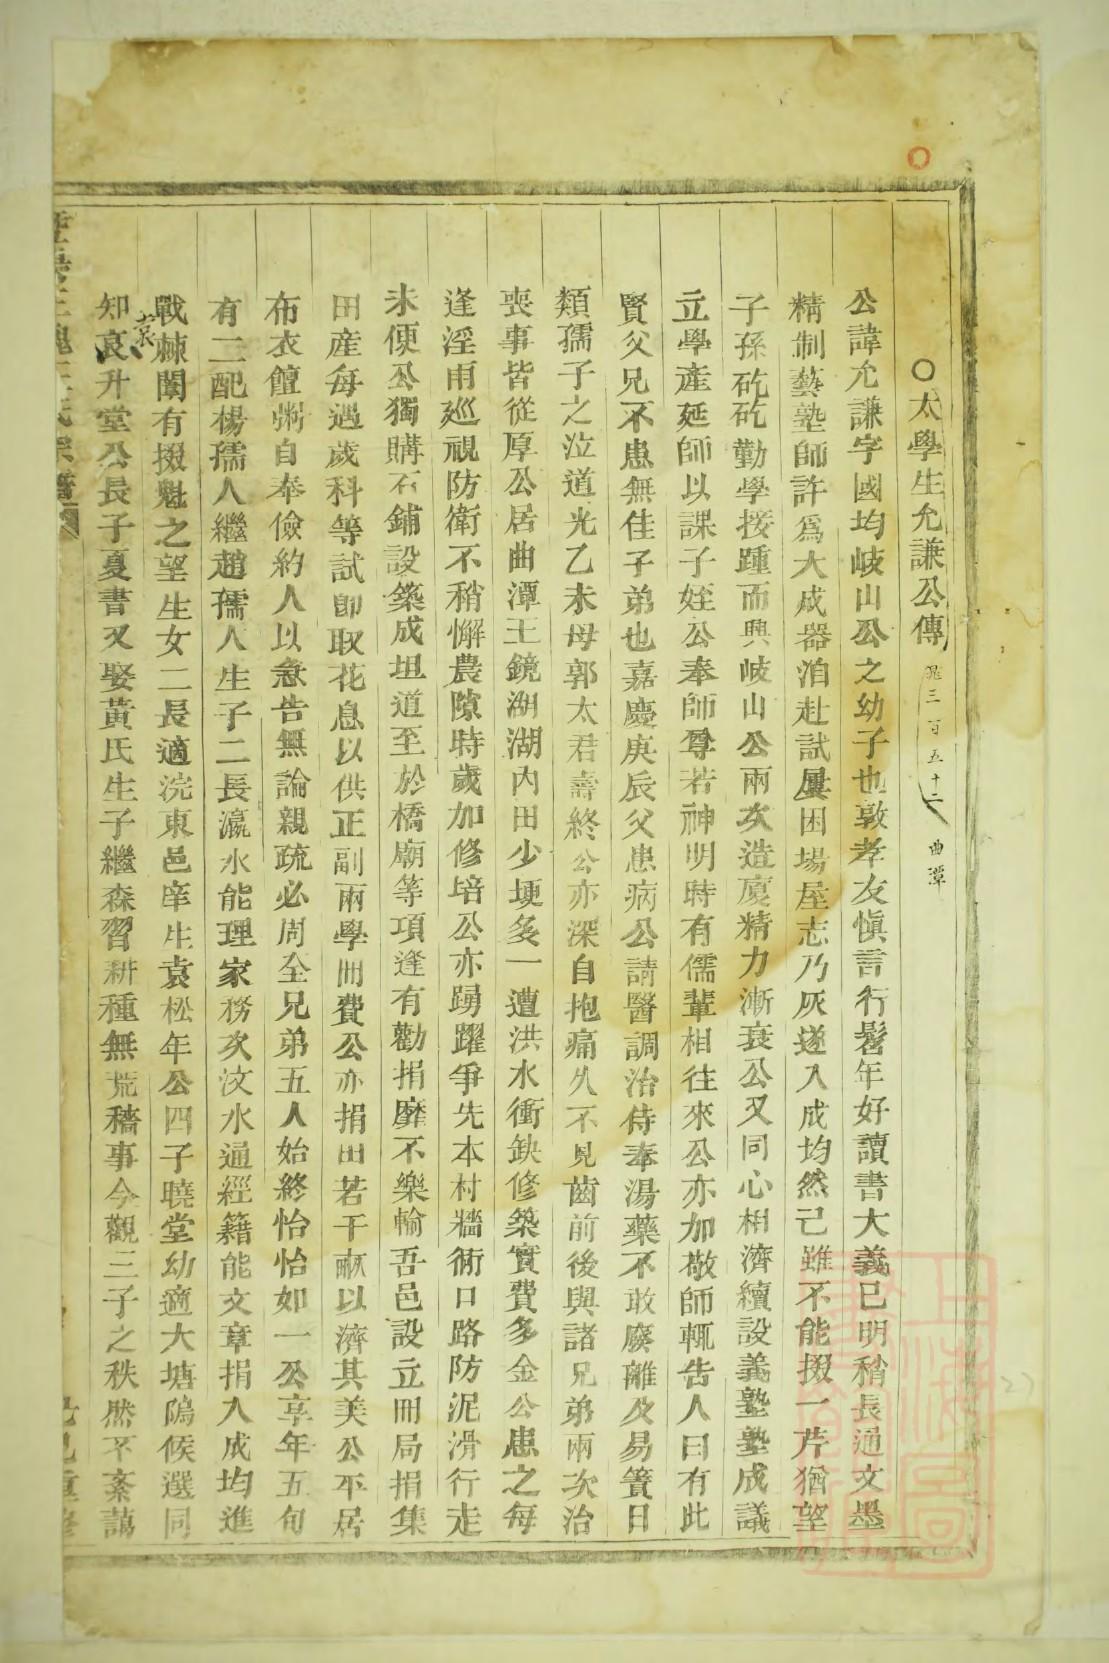 ○太學生允謙公傳 冕三百五十二 曲潭
公諱允謙字國均岐山公之幼子也敦孝友慎言行髫年好讀書大義已明稍長通文墨
精制藝塾師許爲大成器洎赴試屢困場屋志乃灰遂入成均然己雖不能掇一芹猶望
子孫矻矻勤學接踵而興岐山公兩次造廈精力漸衰公又同心相濟續設義塾塾成議
立學產延師以課子姪公奉師尊若神明時有儒輩相往來公亦加敬師輒告人曰有此
賢父兄不患無佳子弟也嘉慶庚辰父患病公請醫調治侍奉湯藥不敢廢離及易簀日
類孺子之泣道光乙未母郭太君壽終公亦深自抱痛久不見齒前後與諸兄弟兩次治
喪事皆從厚公居曲潭王鏡湖湖內田少埂多一遭洪水衝缺修築實費多金公患之每
逢淫雨廵視防衛不稍懈農隙時歲加修培公亦踴躍爭先本村牆衕口路防泥滑行走
未便公獨購石鋪設築成坦道至於橋廟等項逢有勸捐靡不樂輸吾邑設立冊局捐集
田産每遇歲科等試卽取花息以供正副兩學冊費公亦捐田若干畝以濟其美公平居
布衣饘粥自奉儉約人以急告無論親疏必周全兄弟五人始終怡怡如一公享年五旬
有二配楊孺人繼趙孺人生子二長瀛水能理家務次汶水通經籍能文章捐入成均進
戰棘闈有掇魁之望生女二長適浣東邑庠生袁松年公四子曉堂幼適大塘隖候選同
知哀袁升堂公長子夏書又娶黃氏生子繼森習耕種無荒穡事今觀三子之秩然不紊藹